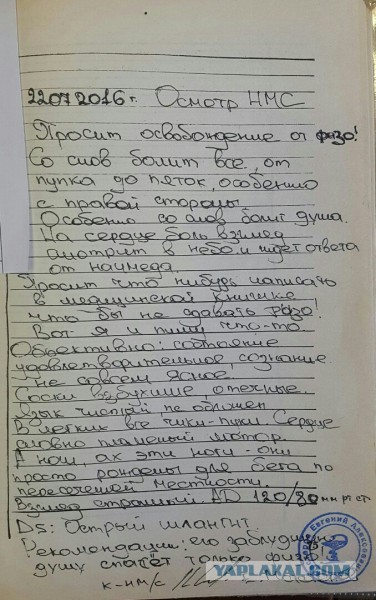 22.07.2016 г. Осмотр НМС
Просит освобождение от физо!
Со слов болит все, от
пупка до пяток, особенно
с правой стороны.
Особенно со слов болит душа.
На сердце боль взгляд
смотрит в небо и ищет ответа
от начмеда.
Просит что нибудь написать
в медицинской книжке
что бы не сдавать физо!
Вот я и пишу что-то
Объективно: состояние
удовлетворительное, сознание
не совсем ясное,
Соски набухшие, отечные.
Язык чистый не обложен
В легких все чики-пуки. Сердце
словно пламенный мотор.
А ноги, ах эти ноги - они
просто рождены для бега по
пересечённой местности.
Взгляд страшный АД 120/80 мм рт ст
DS: Хитрый шланг!!.
Рекомендации: его заблудшую
душу спасёт только физо!
к-н м/с
Евгений Алексеевич
YAPLAKAL.COM